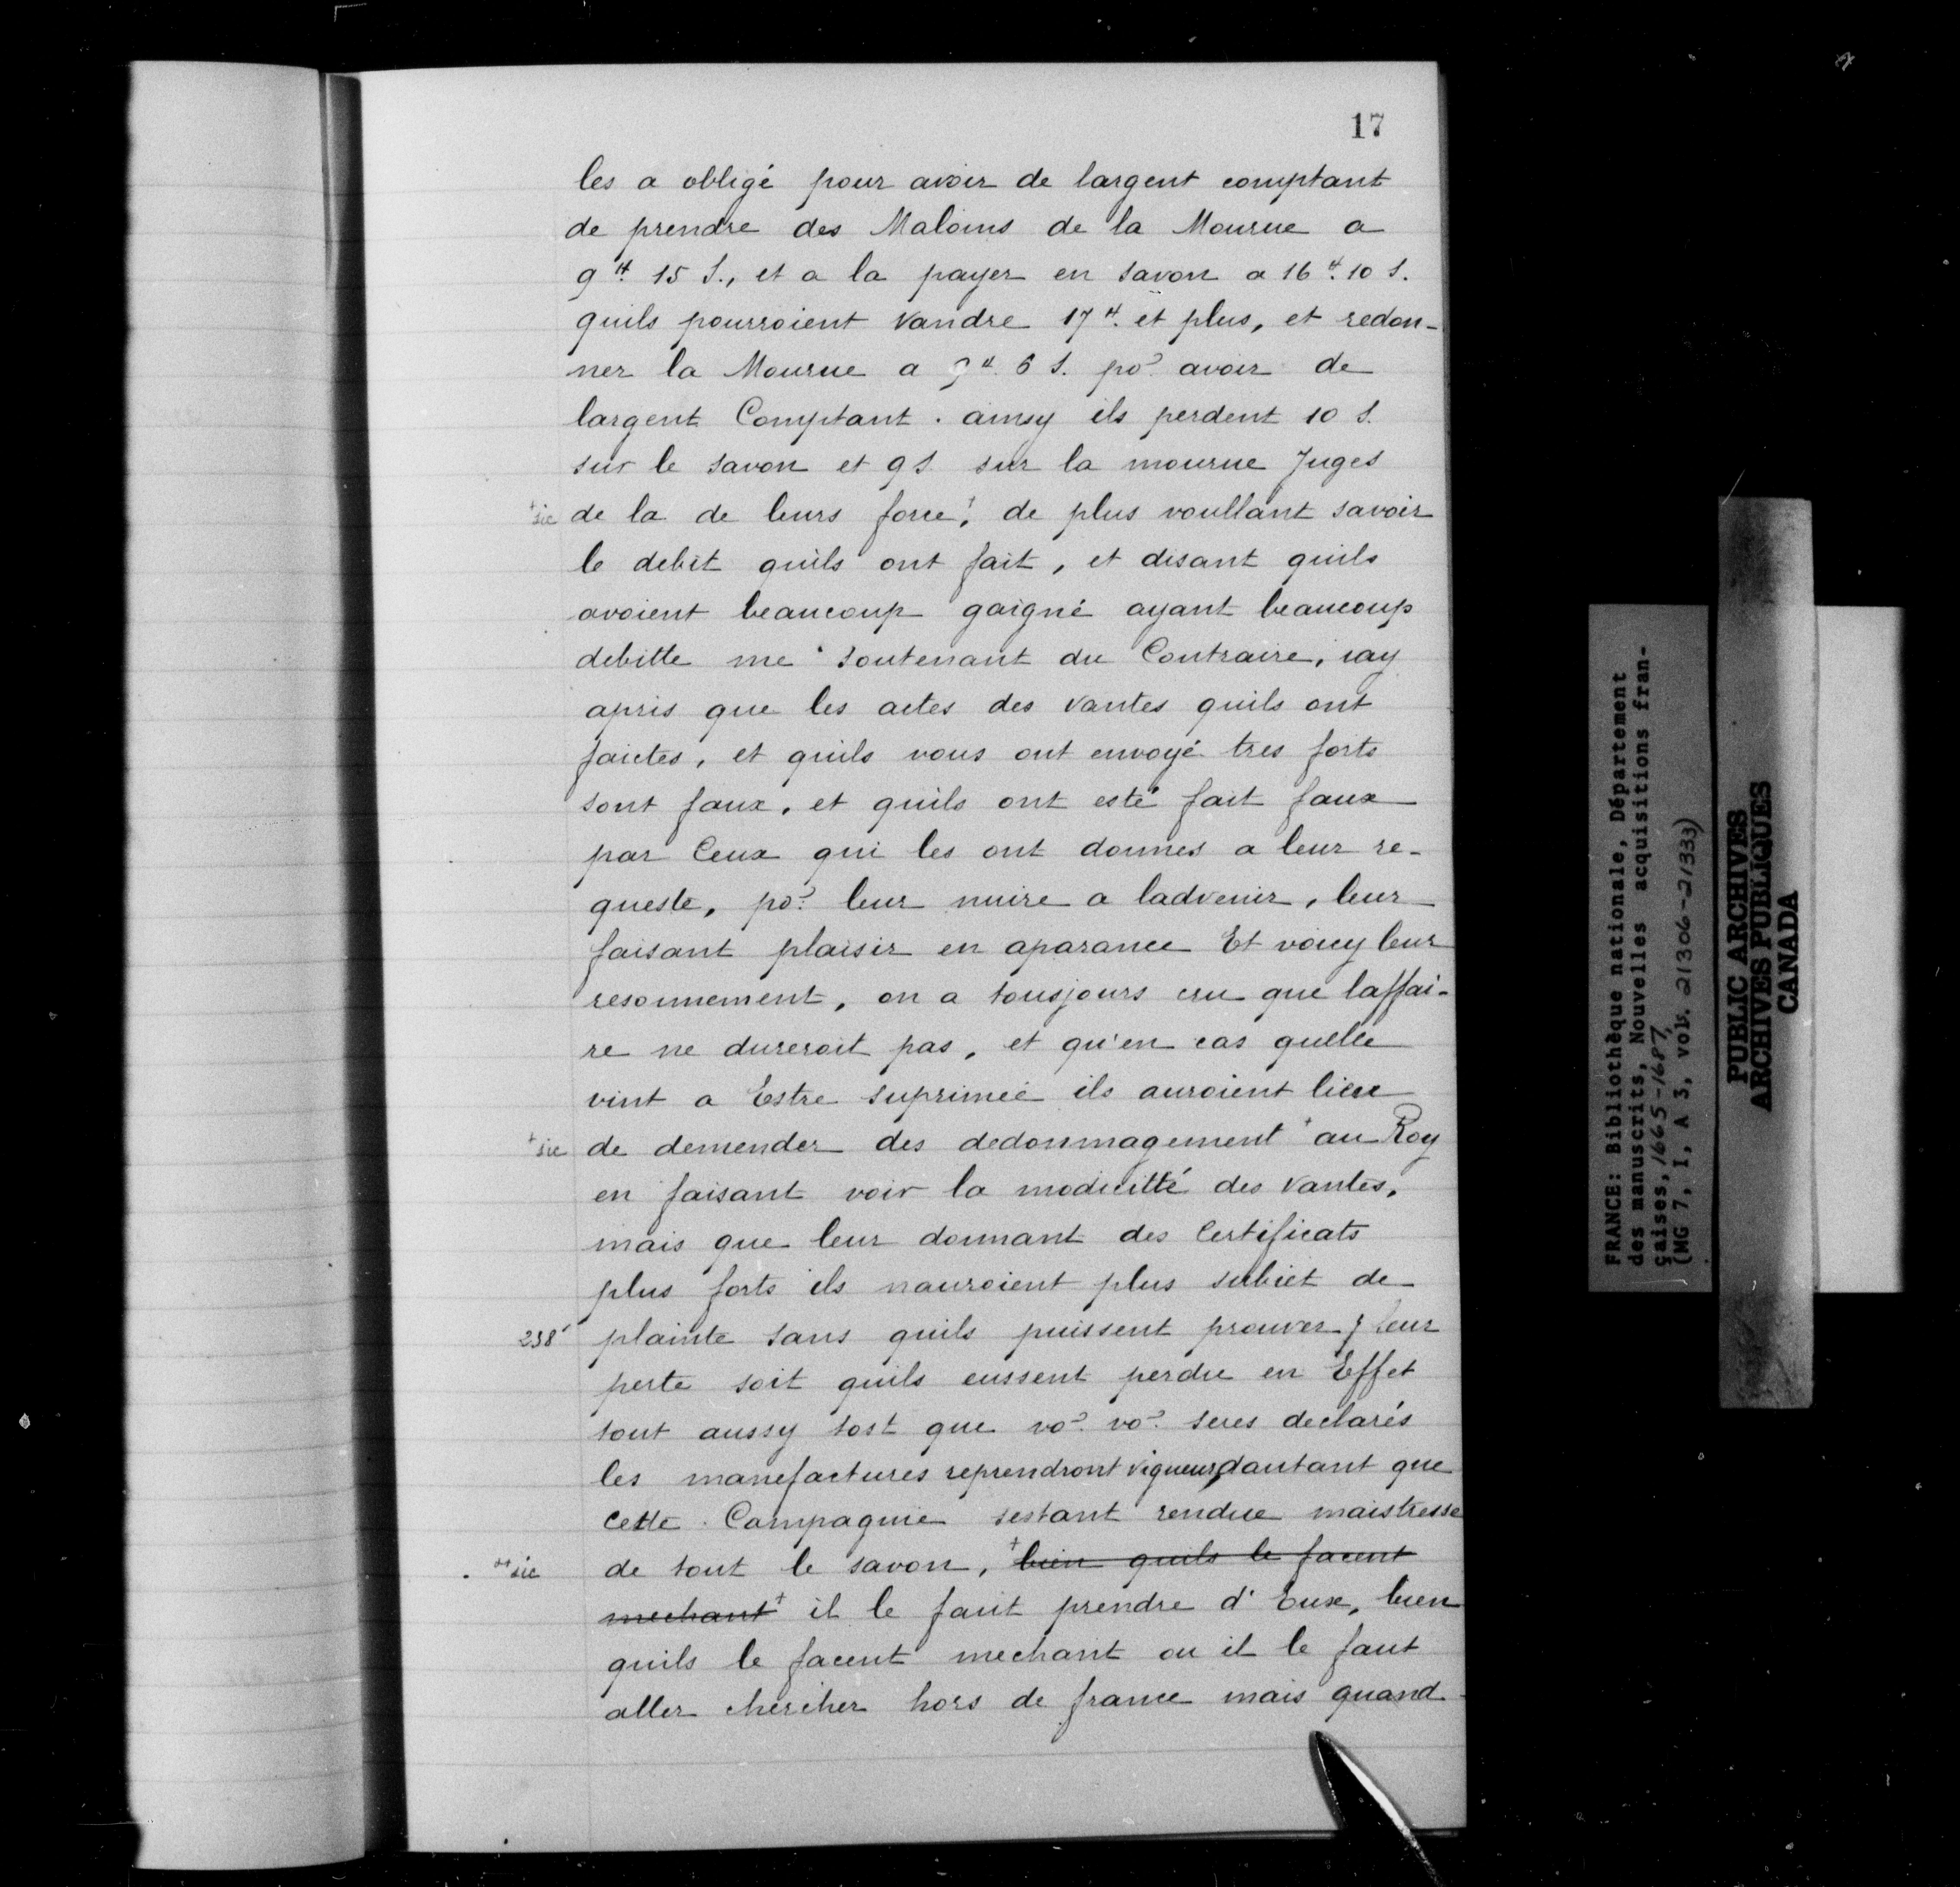 17
les a obligé pour avoir de largent comptant
de prendre des Maloins de la Mourue a
9 ₶. 15 s., et a la payer en savon a 16 ₶. 10 s.
quils pourroient vandre 17 ₶. et plus, et redon-
ner la Mourue a 9 ₶. 6 s. po.r avoir de
largent Comptant. ainsy ils perdent 10 s.
sur le savon et 9 s sur la mourue Juges
+sic de la de leurs force,+ de plus voullant savoir
le debit quils ont fait, et disant quils
avoient beaucoup gaigné ayant beaucoup
debitte me soutenant du Contraire, iay
apris que les actes des vantes quils ont
faictes, et quils vous ont envoyé tres forts
sont faux, et quils ont esté fait faux
par Ceux qui les ont donnes a leur re-
queste, po.r leur nuire a ladvenir, leur
faisant plaisir en aparance Et voicy leur
resonnement, on a tousjours cru que laffai-
re ne dureroit pas, et qu'en cas quelle
vint a Estre suprimée ils auroient lieu
+sic de demender des dedommagement+ au Roy
en faisant voir la modicitté des vantes,
mais que leur donnant des Certificats
plus forts ils nauroient plus subiet de
238' plainte sans quils puissent prouver / leur
perte soit quils eussent perdu en Effet
tout aussy tost que vo.s vo.s seres declarés
les manefactures reprendront vigueur, dautant que
cette Compagnie sestant rendue maistresse
++sic de tout le savon, +bien quils le facent
mechant+ il le faut prendre d'Eux, bien
quils le facent mechant ou il le faut
aller chercher hors de france mais quand
FRANCE: Bibliothèque nationale, Département
des manuscrits, Nouvelles acquisitions fran-
çaises, 1665-1687,
(MG 7, I, A 3, vols. 21306-21333)
PUBLIC ARCHIVES
ARCHIVES PUBLIQUES
CANADA